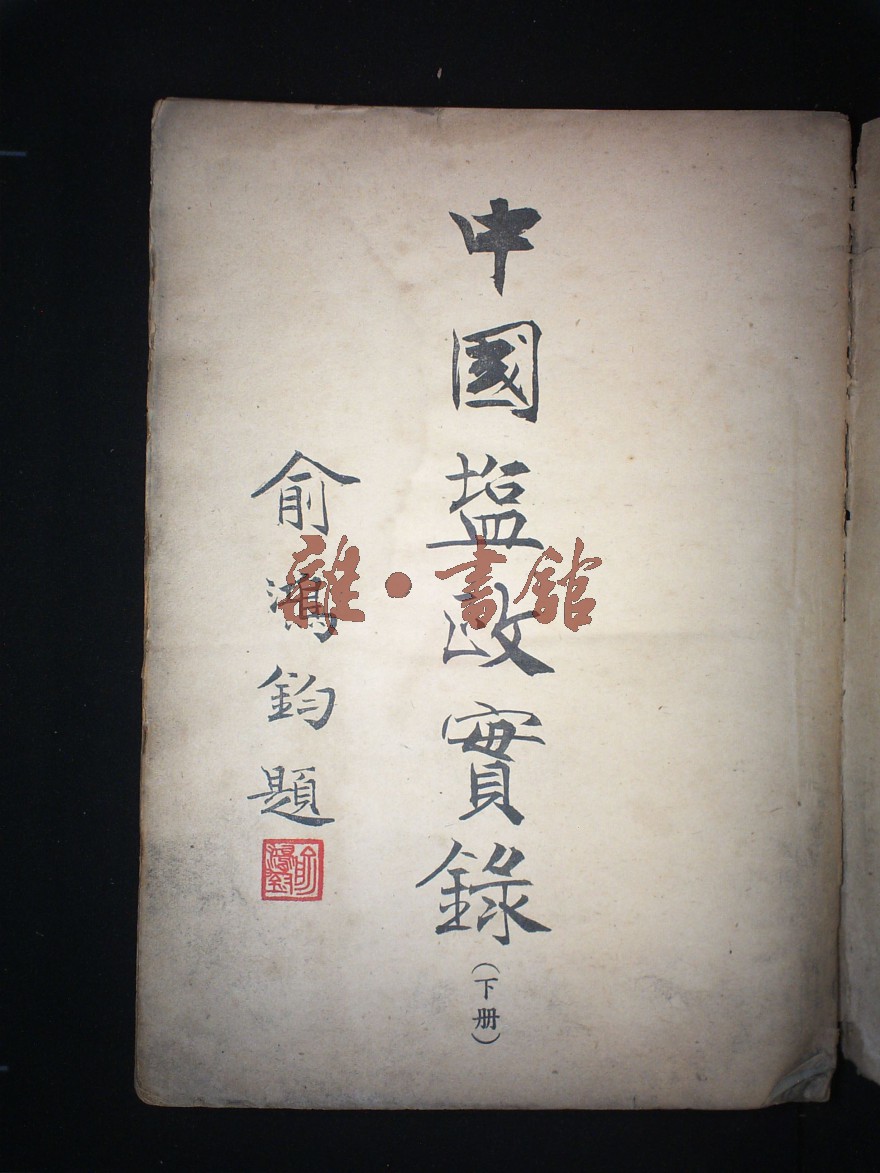 中國塩政實錄
（下册）
俞鴻鈞題
俞鴻鈞
雜·書館